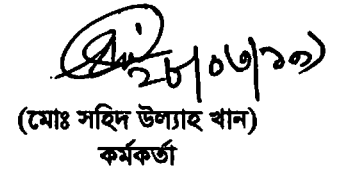 ২৮/০৩/১৯
(মোঃ সহিদ উল্যাহ খান)
কর্মকর্তা